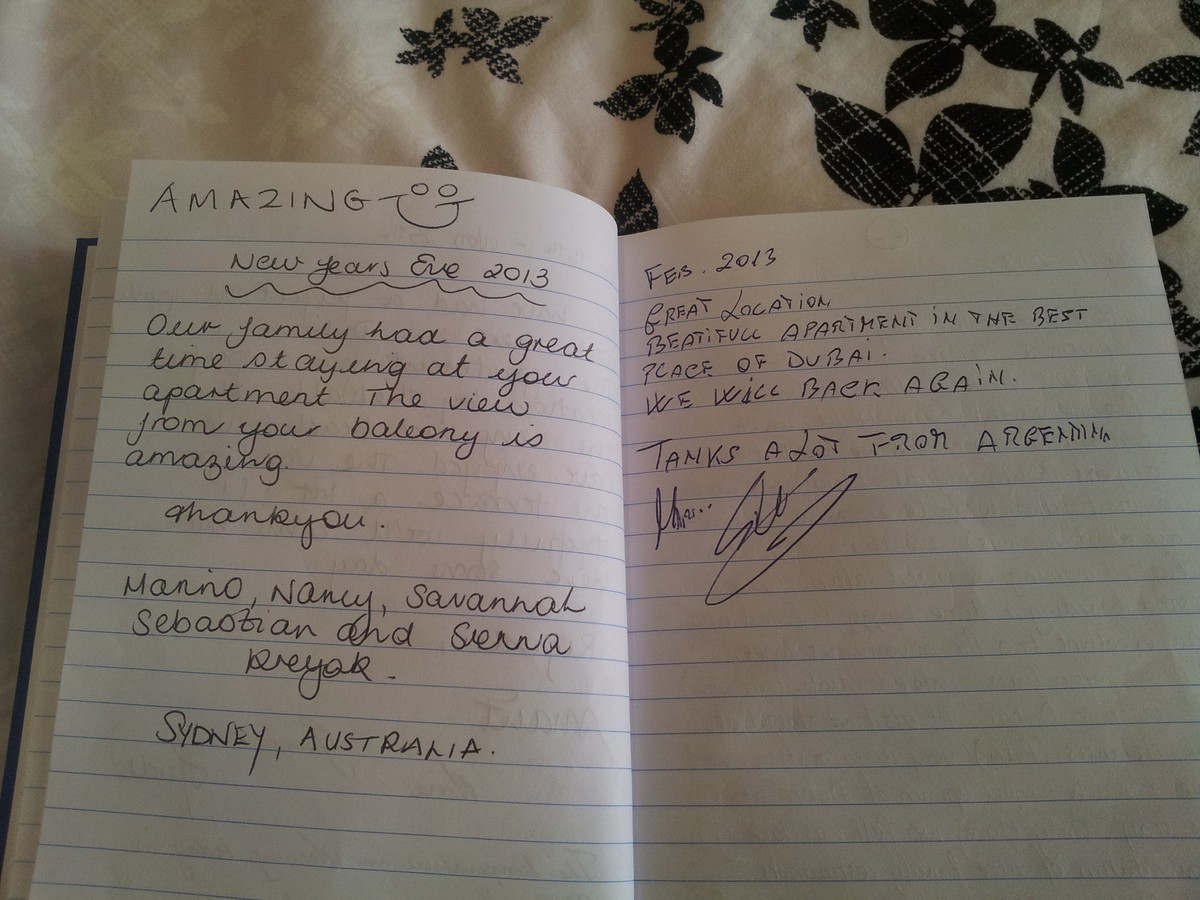 AMAZING
New years Eve 2013
Our family had a great
time staying at your
apartment The view
from your balcony is
amazing.
Thankyou.
Marino, Nancy, Savannah
Sebastian and Sienna
SYDNEY, AUSTRALIA.
FEB. 2013
GREAT LOCATION
BEATIFULL APARTMENT IN THE BEST
PLACE OF DUBAI.
WE WILL BACK AGAIN.
TANKS A LOT FROM ARGENTINA